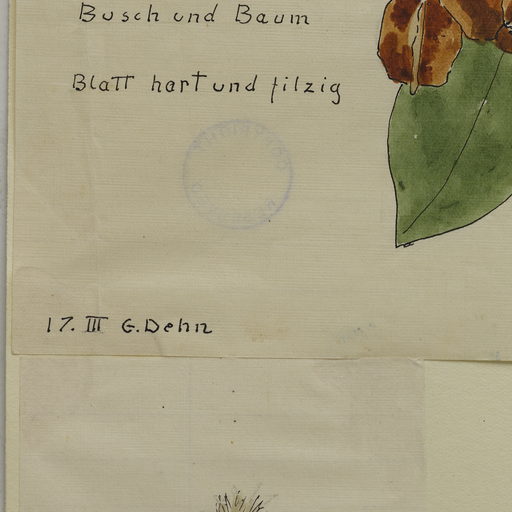 Busch und Baum
Blatt hart und filzig
17. III G. Dehn